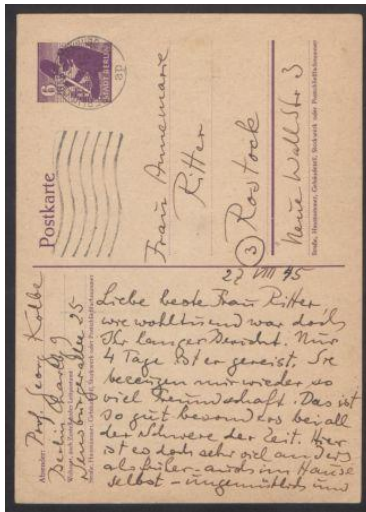 6
STADT BERLIN
Postkarte
Frau Annemarie
Ritter
(3) Rostock
Neue Wallstr 3
Straße, Hausnummer, Gebäudeteil, Stockwerk oder Postschließfachnummer
Absender: Prof. Georg Kolbe
Berlin Charlbg 9
Wohnort, auch Zustell- oder Leitpostamt
25
Straße, Hausnummer, Gebäudeteil, Stockwerk oder Postschließfachnummer
22 VIII 45
Liebe beste Frau Ritter
wie wohltuend war doch
Ihr langer Bericht. Nur
4 Tage ist er gereist. Sie
bezeugen mir wieder so
viel Freundschaft. Das ist
so gut besonders bei all
der Schwere der Zeit. Hier
ist es doch sehr viel anders
als früher - auch im Hause
selbst - ungemütlich und